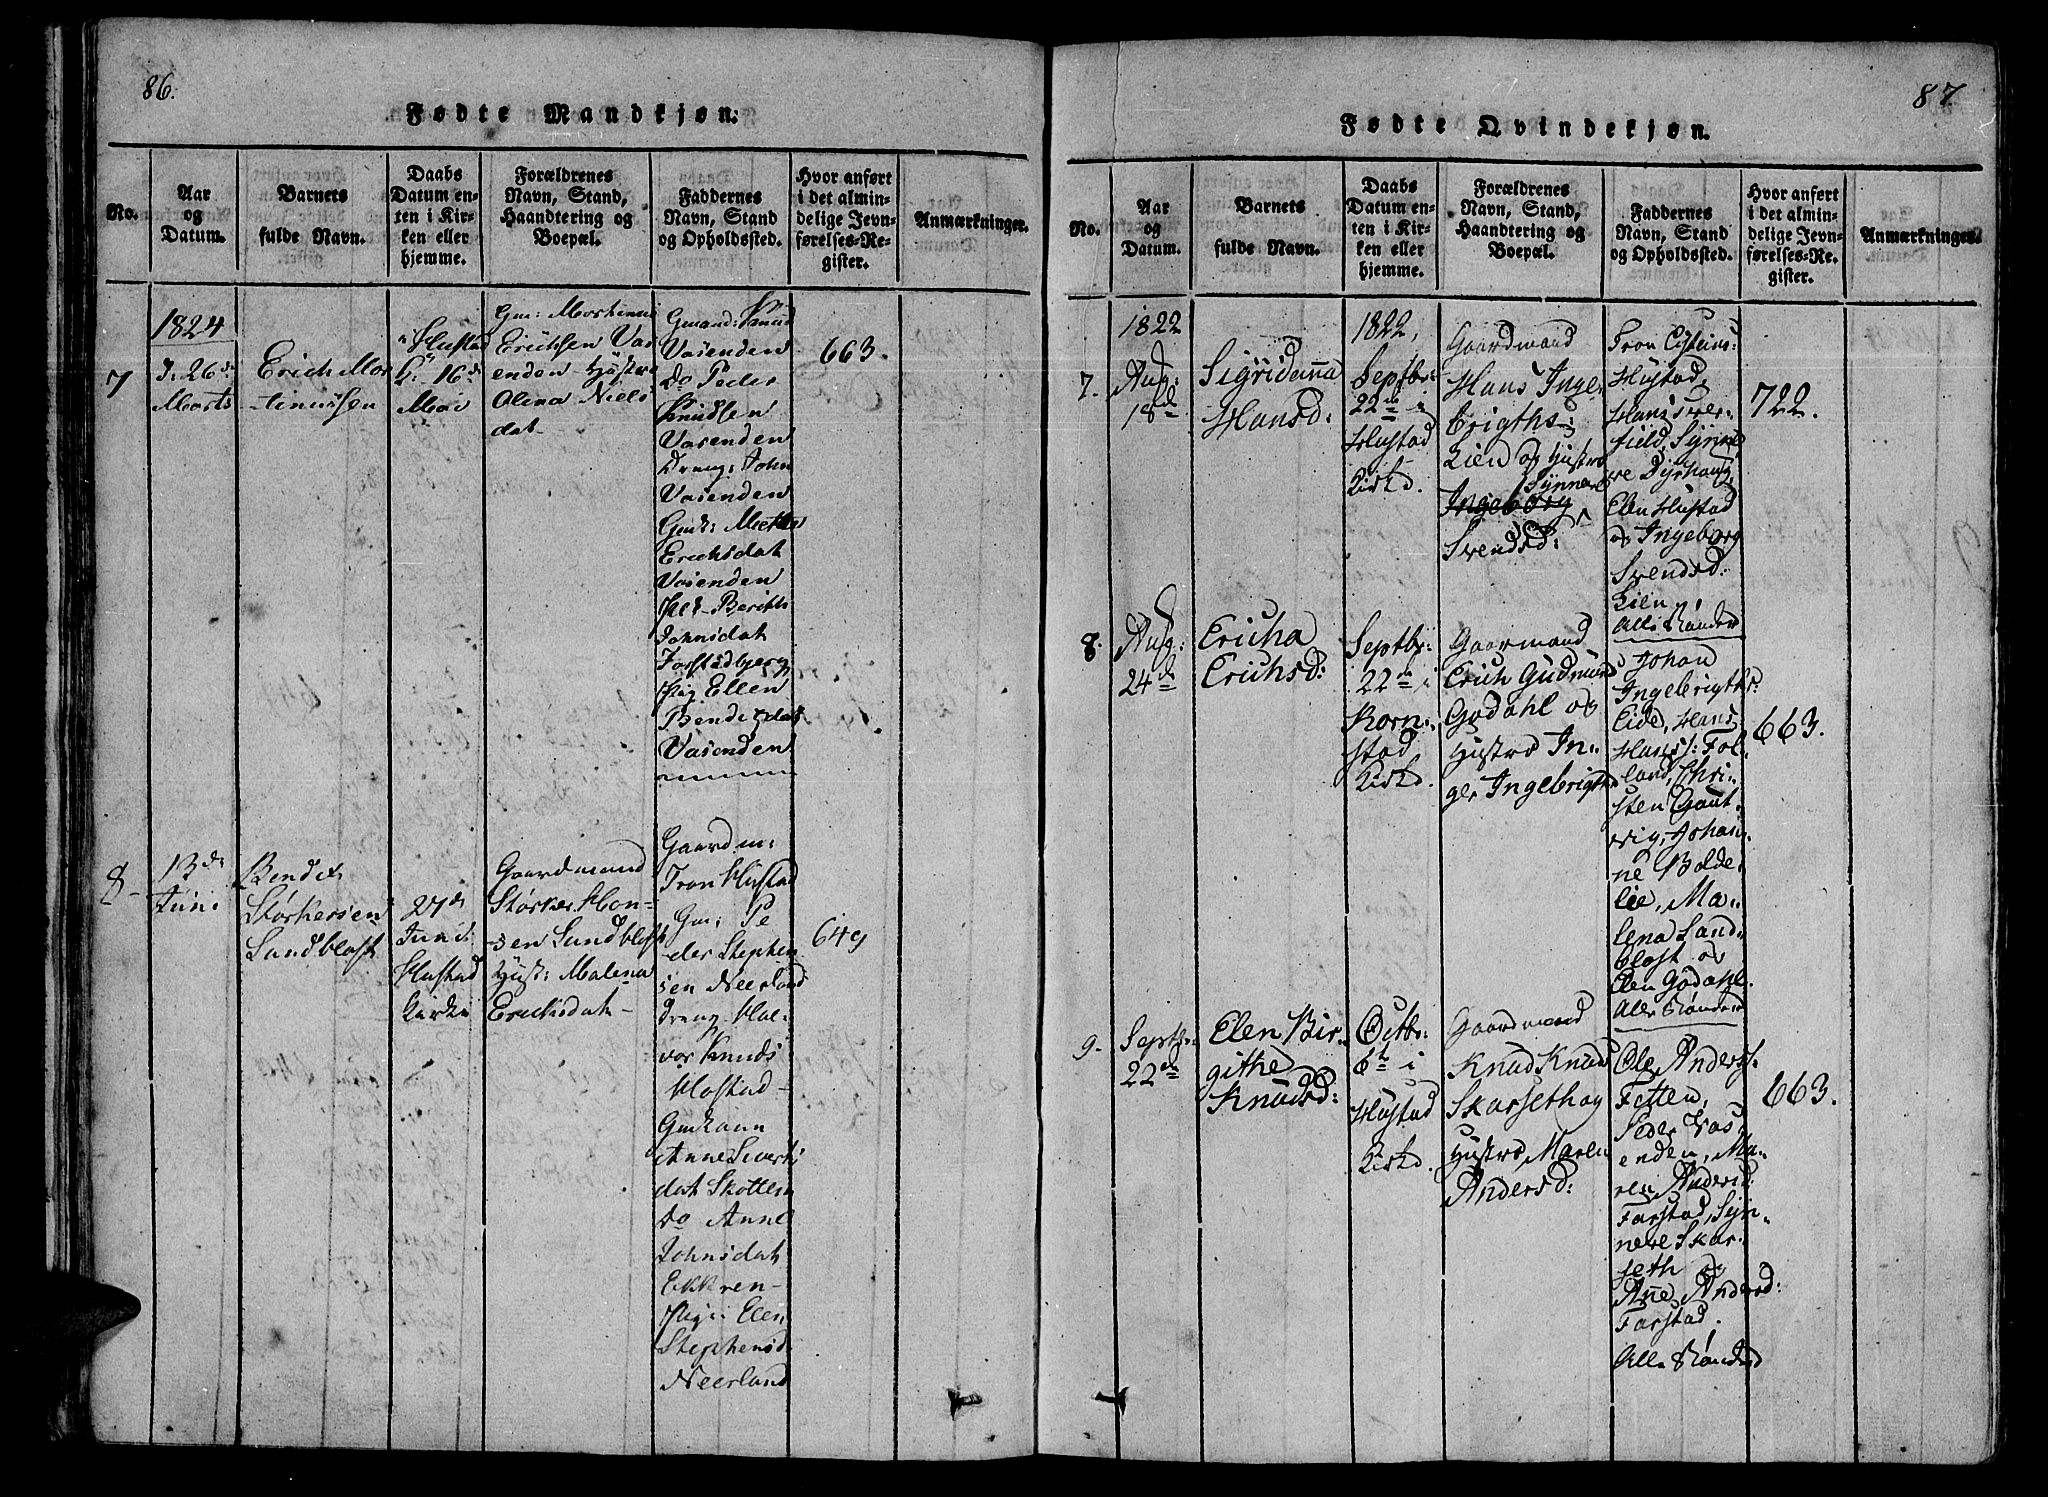 86.
Fødte Mandkjøn.
No.
Aar
og
Datum.
Barnets
fulde Navn.
Daabs
Datum en-
ten i Kir-
ken eller
hjemme.
Forældrenes
Navn, Stand,
Haandtering og
Boepæl.
Faddernes
Navn, Stand
og Opholdssted.
Hvor anført
i det almin-
delige Jevn-
førelses-Re-
gister.
Anmærkninger.
7
1824
26de
Marts
Erich Mor
tinussen
Hustad
16de
Mai
Gm: Mortinus
Erichsen Vas
enden Hustroe
Olena Niels
dat
Gmand: Knud
Vasenden
Do Peder
Knudsen
Vasenden
Dreng: John
Vasenden
Gmk: Mette
Erichsdat
Vasenden
Berith
Johnsdat
Farstadbjerg
Pig Ellen
Bendetsdat
Vasenden
663.
8
13de
Juni
Bendix
Størkersen
Sandblost
27de
Juni
Hustad
Kirke
Gaardmand
Størker Han-
sen Sandblost
Hust: Malena
Erichsdat-
Gaardm:
Tron Hustad
Gm: Pe
der Stephen
sen Neerland
Dreng Hal-
vor Knuds
Hostad-
Gmkann
Anne Siverts
dat Skotten
Do Anne
Johnsdat
Ekkren-
Pige: Elen
Stephensd
Neerland
649
87.
Fødte Qvindekjøn.
No.
Aar
og
Datum.
Barnets
fulde Navn.
Daabs
Datum en-
ten i Kir-
ken eller
hjemme.
Forældrenes
Navn, Stand,
Haandtering og
Boepæl.
Faddernes
Navn, Stand
og Opholdssted.
Hvor anført
i det almin-
delige Jevn-
førelses-Re-
gister.
Anmærkninger.
7.
1822
Aug:
18de
Sigridanna
Hansd:
1822,
Septbr:
22de i
Hustad
Kirke.
Gaardmand
Hans Inge
brigths:
Lien og Hustro
Synnøve
Ingeborg
Svendsd:
Tron Eisteins:
Hustad,
Hans Sver-
field, Synnø
ve Dyrhaug,
Elen Hustad
og Ingeborg
Svendsd:
Lien.
Alle Bønder
722.
8.
Aug:
24de
Ericha
Erichsd:
Septbr:
22de i
Korn-
stad
Kirke.
Gaarmand
Erich Gudmund
Godahl og
Hustro In-
ger Ingebrigths
Johan
Ingebrigths:
Eide, Hans
Hanss: Fol-
land, Chri-
sten Gaut-
vig, Johan-
ne Bolde-
lie, Ma-
lena Sand-
blost og
Elen Gødahl.
Alle Bønder
663.
9.
Septbr:
22de
Elen Bir-
githe
Knudsd:
Octbr:
6te i
Hustad
Kirke.
Gaardmand
Knud Knuds
Skarseth og
Hustro Maren
Andersd:
Ole Anderss.
Tetten,
Peder Vas-
enden, Ma-
ren Andersd:
Farstad, Syn-
neve Skar-
seth og
Ane Andersd:
Farstad.
Alle Bønder
663.